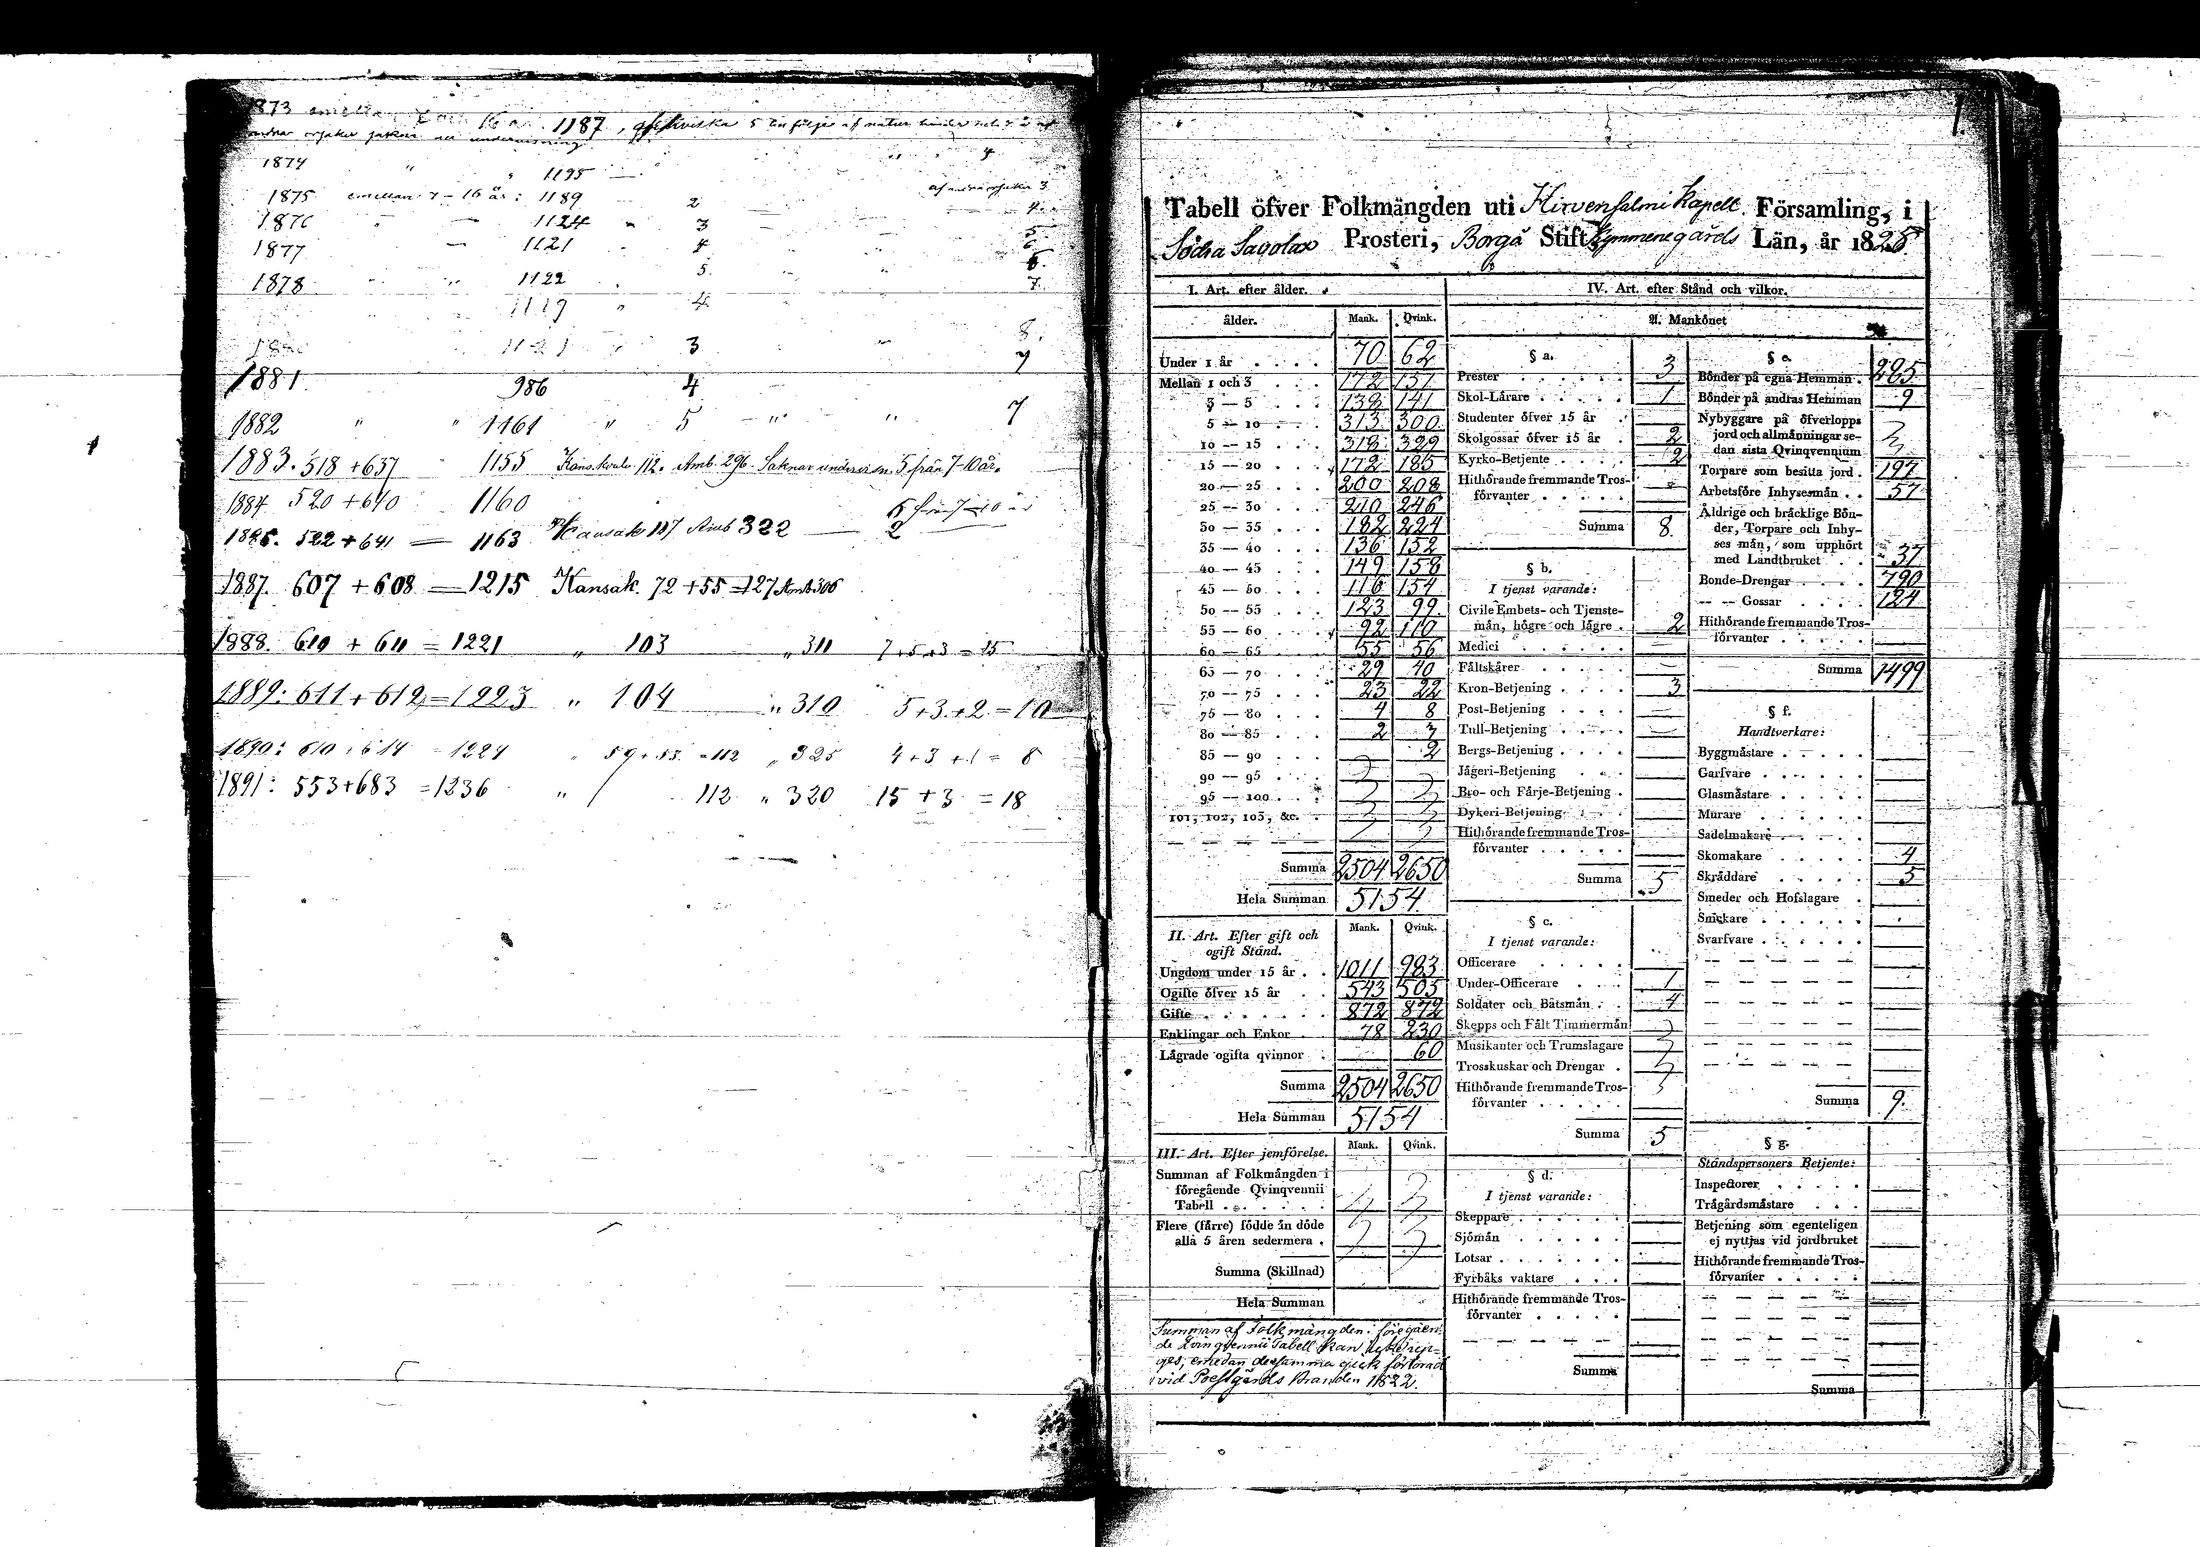 1873 emellan 1187, 5 af natur
undervisning
1874 " " 1195 — " " 4
1875 emellan 7–16 år: 1189 — 2 af andra orsaker 3
1876 " — 1124 " 3 4
1877 — 1121 " 4
1878 " " 1122 . 5
1119 " 4 7
3 " 8
1881 986 4 7
1882 " " 1161 " 5 —"— " 7
1883. 518 + 637 1155 112. Amb. 296. Saknar undervisn. 5 från 7–10 år.
1884 520 + 640 1160 6 från 7–10 år
1885. 522 + 641 — 1163 Kansak 117 Amb 322 — 2
1887. 607 + 608 — 1215 Kansak. 72 + 55 = 127 Amb 306
1888. 610 + 611 = 1221 " 103 " 311 7 + 5 + 3 = 15
1889: 611 + 612 = 1223 " 104 " 310 5 + 3 + 2 = 10
1890: 610 + 614 = 1224 " 59 + 53 = 112 " 325 4 + 3 + 1 = 8
1891: 553 + 683 = 1236 " 112 " 320 15 + 3 = 18
1.
Tabell öfver Folkmängden uti Hirvensalmi Kapell Församling, i
Södra Savolax Prosteri, Borgå Stift, Kymmenegårds Län, år 1825.
I. Art. efter ålder.
ålder. Mank. Qvink.
Under 1 år . . . . 70 62
Mellan 1 och 3 . . . 172 151
3 — 5 . . . 138 141
5 — 10 . . . 313 300
10 — 15 . . . 318 329
15 — 20 . . . 172 185
20 — 25 . . . 200 208
25 — 30 . . . 210 246
30 — 35 . . . 182 224
35 — 40 . . . 136 152
40 — 45 . . . 149 158
45 — 50 . . . 116 154
50 — 55 . . . 123 99.
55 — 60 . . . 92 110
60 — 65 . . . 55 56
65 — 70 . . . 29 40
70 — 75 . . . 23 22
75 — 80 . . . 4 8
80 — 85 . . . 2 3
85 — 90 . . . 2
90 — 95 . . .
95 — 100 . . .
101, 102, 103, &c. .
Summa 2504 2650
Hela Summan 5154.
II. Art. Efter gift och Mank. Qvink.
ogift Stånd.
Ungdom under 15 år . . 1011 983
Ogifte öfver 15 år . . 543 505
Gifte . . . . . . 872 872
Enklingar och Enkor . . 78 230
Lägrade ogifta qvinnor . 60
Summa 2504 2650
Hela Summan 5154
III. Art. Efter jemförelse. Mank. Qvink.
Summan af Folkmängden i
föregående Qvinqvennii
Tabell . . . . . .
Flere (färre) födde än döde
alla 5 åren sedermera .
Summa (Skillnad)
Hela Summan
Summan af Folkmängden i föregåen-
de Qvinqvennii Tabell kan icke
ges, emedan densamma gick förlorad
vid Prestgårds Branden 1822.
IV. Art. efter Stånd och vilkor.
A. Mankönet
§ a.
Prester . . . . . . 3
Skol-Lärare . . . . . 1
Studenter öfver 15 år .
Skolgossar öfver 15 år . 2
Kyrko-Betjente . . . . 2
Hithörande fremmande Tros-
förvanter . . . . .
Summa 8.
§ b.
I tjenst varande:
Civile Embets- och Tjenste-
män, högre och lägre . 2
Medici . . . . . . —
Fältskärer . . . . . —
Kron-Betjening . . . . 3
Post-Betjening . . . . —
Tull-Betjening . . . . —
Bergs-Betjening . . . . —
Jägeri-Betjening . . . —
Bro- och Färje-Betjening . —
Dykeri-Betjening . . . —
Hithörande fremmande Tros-
förvanter . . . . . —
Summa 5
§ c.
I tjenst varande:
Officerare . . . . .
Under-Officerare . . . 1
Soldater och Båtsmän . . 4
Skepps och Fält Timmermän
Musikanter och Trumslagare
Trosskuskar och Drengar .
Hithörande fremmande Tros-
förvanter . . . . .
Summa 5
§ d.
I tjenst varande:
Skeppare . . . . . .
Sjömän . . . . . .
Lotsar . . . . . . .
Fyrbåks vaktare . . .
Hithörande fremmande Tros-
förvanter . . . . .
Summa
§ e.
Bönder på egna Hemman . 285
Bönder på andras Hemman 9
Nybyggare på öfverlopps
jord och allmänningar se-
dan sista Qvinqvennium
Torpare som besitta jord . 197
Arbetsföre Inhysesmän . . 57
Åldrige och bräcklige Bön-
der, Torpare och Inhy-
ses män, som upphört
med Landtbruket . . 37
Bonde-Drengar . . . . 790
— — Gossar . . . . 124
Hithörande fremmande Tros-
förvanter . . . . . —
Summa 1499
§ f.
Handtverkare:
Byggmästare . . . . .
Garfvare . . . . . .
Glasmästare . . . . .
Murare . . . . . .
Sadelmakare . . . . .
Skomakare . . . . . 4
Skräddare . . . . . 5
Smeder och Hofslagare .
Snickare . . . . . .
Svarfvare . . . . . .
Summa 9.
§ g.
Ståndspersoners Betjente:
Inspectorer . . . . .
Trägårdsmästare . . .
Betjening som egenteligen
ej nyttjas vid jordbruket
Hithörande fremmande Tros-
förvanter . . . . .
Summa